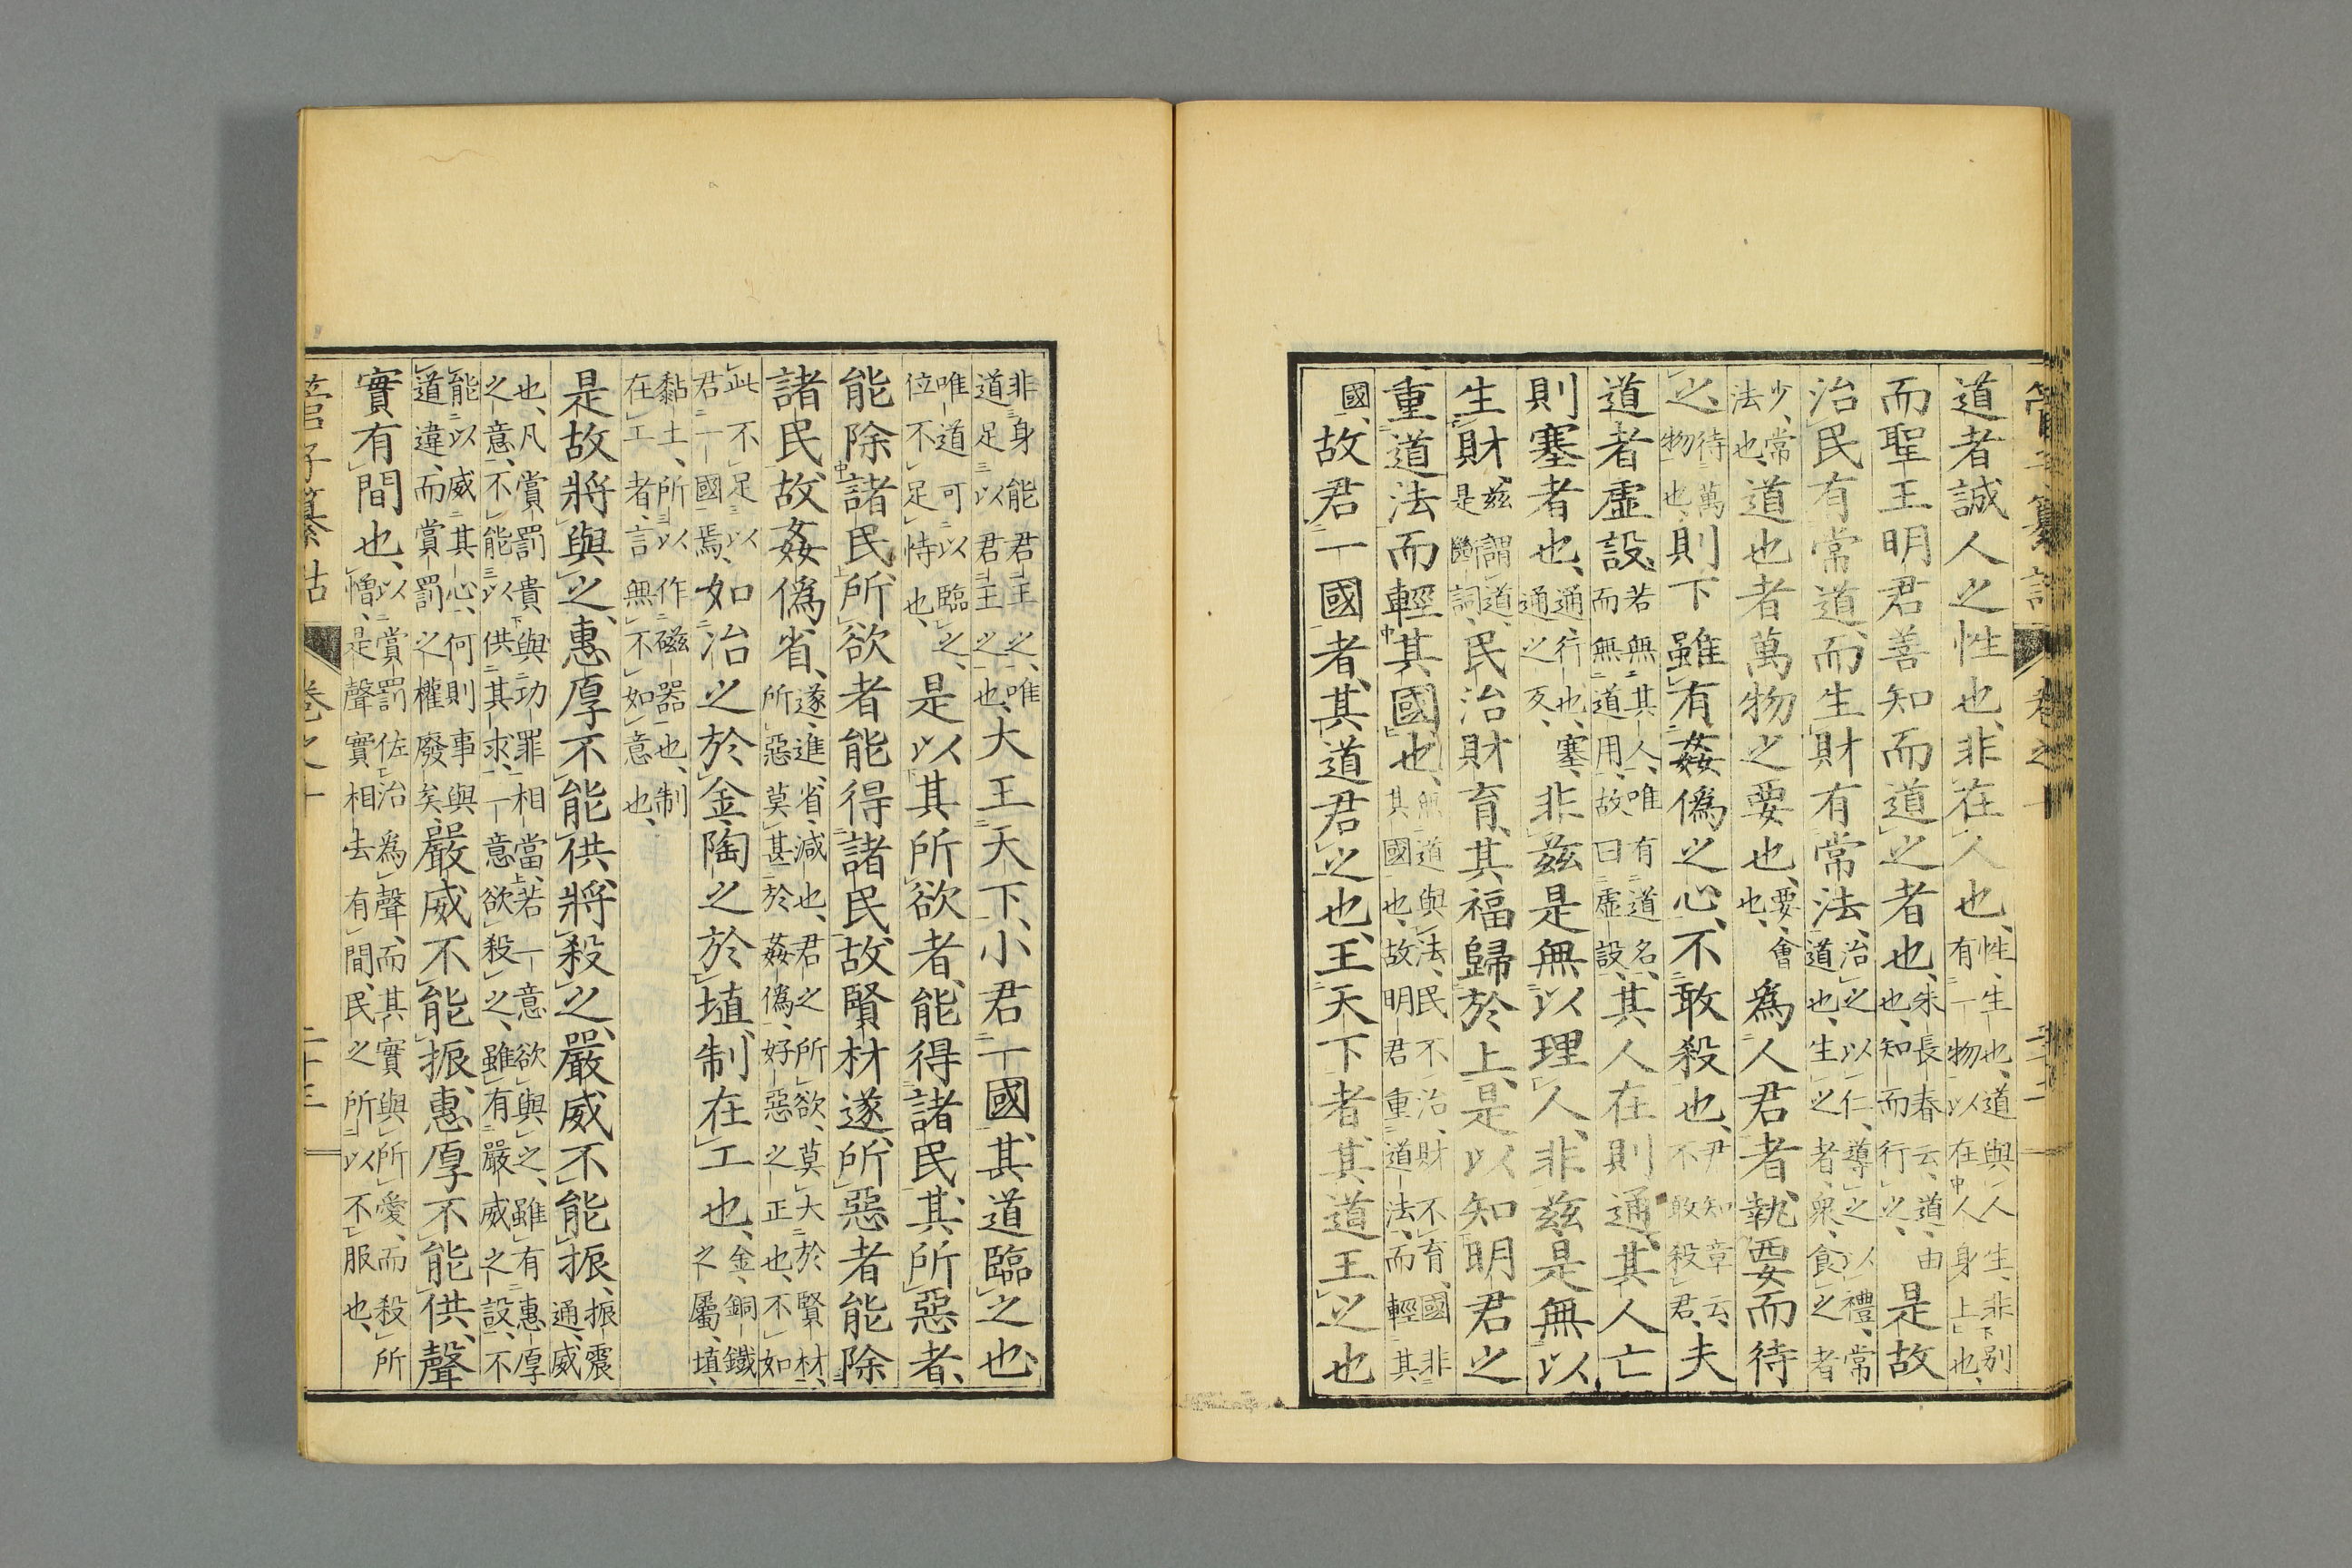 管子纂詁 卷之十 二十二
道者誠人之性也、非在人也、性、生也、道與人生、非別有一物以在人身上也、
而聖王明君善知而道之者也、朱長春云、道、由也、知而行之、是故
治民有常道、而生財有常法、治之以仁、導之以禮、常道也、生之者、衆、食之者
少、常法也、道也者萬物之要也、要、會也、爲人君者執要而待
之、待萬物也、則下雖有姦僞之心、不敢殺也、尹知章云、不敢殺君、夫
道者虛設、若無其人、唯有道名、而無道用、故曰虛設、其人在則通、其人亡
則塞者也、通、行也、塞、通之反、非茲是無以理人、非茲是無以
生財、茲謂道、是斷詞、民治財育、其福歸於上、是以知明君之
重道法而輕其國也、無道與法、民不治、財不育、國非其國也、故明君重道法、而輕其
國、故君一國者、其道君之也、王天下者、其道王之也
非身能君王之、唯道足以君王之也、大王天下、小君一國、其道臨之也、
唯道可以臨之、位不足恃也、是以其所欲者、能得諸民、其所惡者、
能除諸民、所欲者能得諸民、故賢材遂、所惡者能除
諸民、故姦僞省、遂、進、省、減也、君之所欲、莫大於賢材、所惡莫甚於姦僞、好惡之正也、不如
此不足以君一國焉、如冶之於金、陶之於埴、制在工也、金、銅鐵之屬、埴、
黏土、所以作磁器也、制在工者、言無不如意也、
是故將與之、惠厚不能供、將殺之、嚴威不能振、振震通、威
也、凡賞罰貴與功罪相當、若一意欲與之、雖有惠厚之意、不能以供其求、一意欲殺之、雖有嚴威之設、不
能以威其心、何則事與道違、而賞罰之權廢矣、嚴威不能振、惠厚不能供、聲
實有間也、以賞罰佐治爲聲、而其實與所愛、而殺所憎、是聲實相去有間、民之所以不服也、
管子纂詁 卷之十 二十三